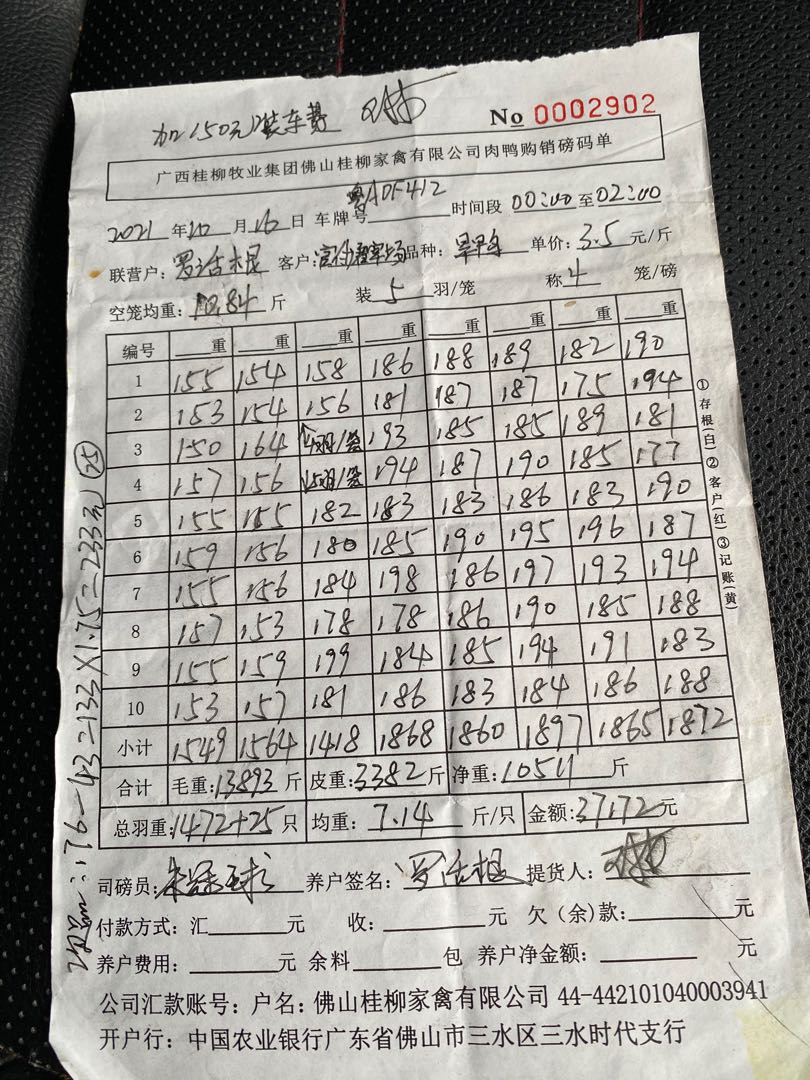 加150元装车费
No 0002902
广西桂柳牧业集团佛山桂柳家禽有限公司肉鸭购销磅码单
2021年10月16日 车牌号粤ADF412 时间段 00:00至02:00
联营户:罗活根 客户: 品种: 单价:3.5元/斤
空笼均重:10.84斤 装5羽/笼 称4笼/磅
编号 重 重 重 重 重 重 重 重
1 155 154 158 186 188 189 182 190
2 153 154 156 181 187 187 175 194
3 150 164 ↑4羽/笼 193 185 185 189 181
4 157 156 ↓5羽/笼 194 187 190 185 177
5 155 155 182 183 183 186 183 190
6 159 156 180 185 190 195 196 187
7 155 156 184 198 186 197 193 194
8 157 153 178 178 186 190 185 188
9 155 159 199 184 185 194 191 183
10 153 157 181 186 183 184 186 188
小计 1549 1564 1418 1868 1860 1897 1865 1872
合计 毛重:13893斤 皮重:3382斤 净重:10511斤
总羽重:1472+25只 均重:7.14斤/只 金额:37172元
司磅员: 养户签名:罗活根 提货人:
付款方式:汇 元 收: 元 欠(余)款: 元
养户费用: 元 余料 包 养户净金额: 元
公司汇款账号:户名:佛山桂柳家禽有限公司 44-442101040003941
开户行:中国农业银行广东省佛山市三水区三水时代支行
①存根(白)②客户(红)③记账(黄)
176-43=133×1.75=233元 25